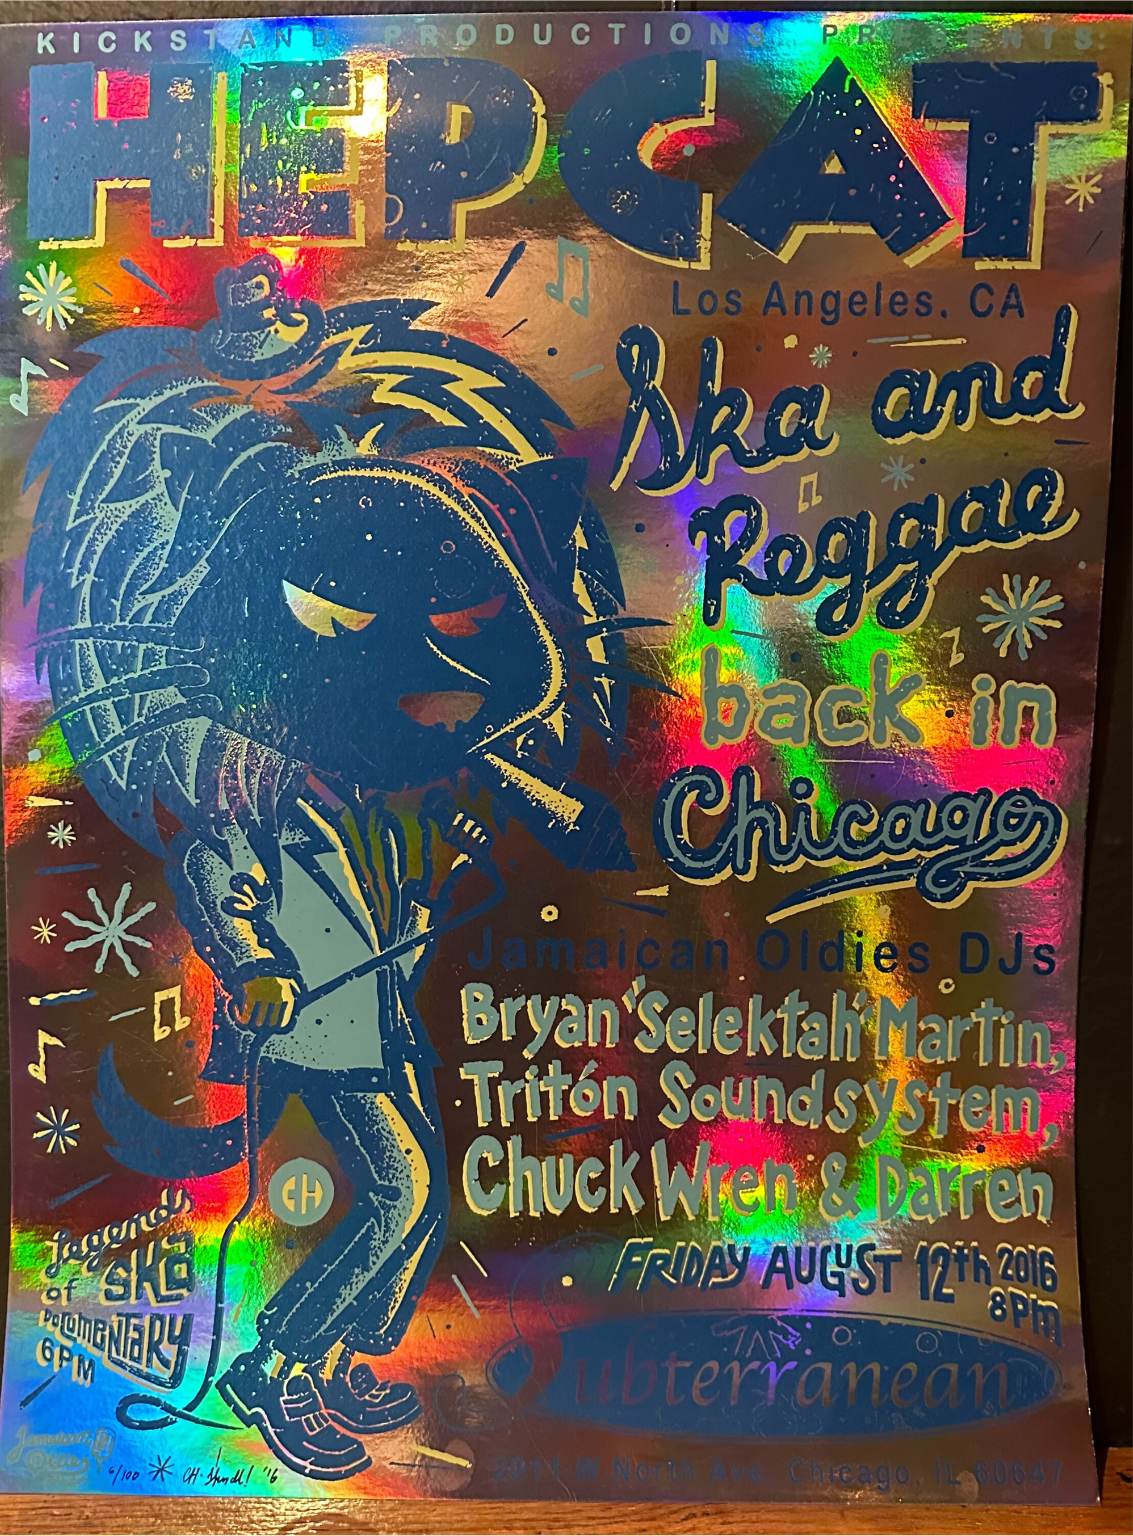 KICKSTAND PRODUCTIONS PRESENTS:
HEPCAT
Los Angeles, CA
Ska and
Reggae
back in
Chicago
Jamaican Oldies DJs
Bryan "Selektah" Martin,
Tritón Soundsystem,
Chuck Wren & Darren
FRIDAY AUGUST 12th 2016
8PM
Subterranean
2011 W North Ave. Chicago, IL 60647
CH
Legends
of SKA
DOCUMENTARY
6PM
Jamaican
Oldies
6/100
CH 
'16